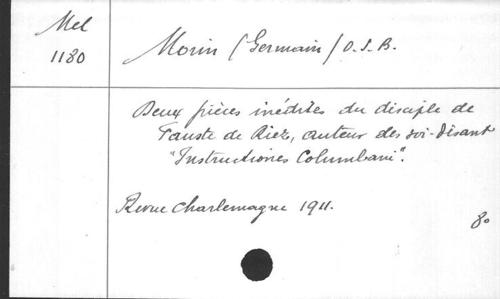 Mel
1180
Morin (Germain) O.S.B.
Deux pièces inédites du disciple de
Fauste de Riez, auteur des soi-disant
"Instructiones Columbani".
Revue Charlemagne 1911.
8o